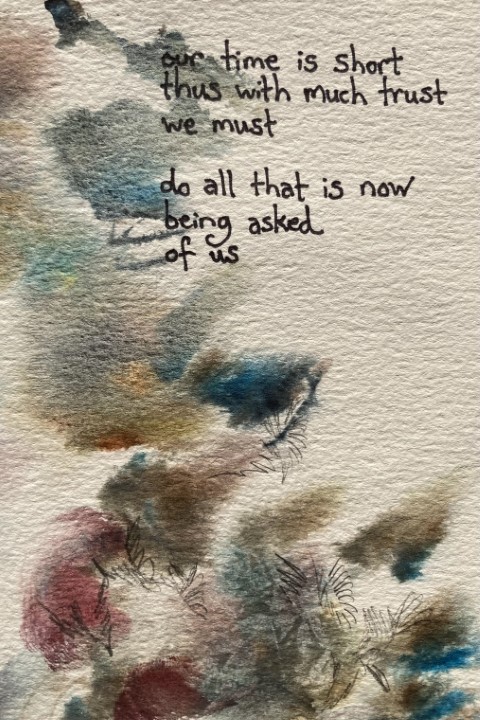 our time is short
thus with much trust
we must
do all that is now
being asked
of us